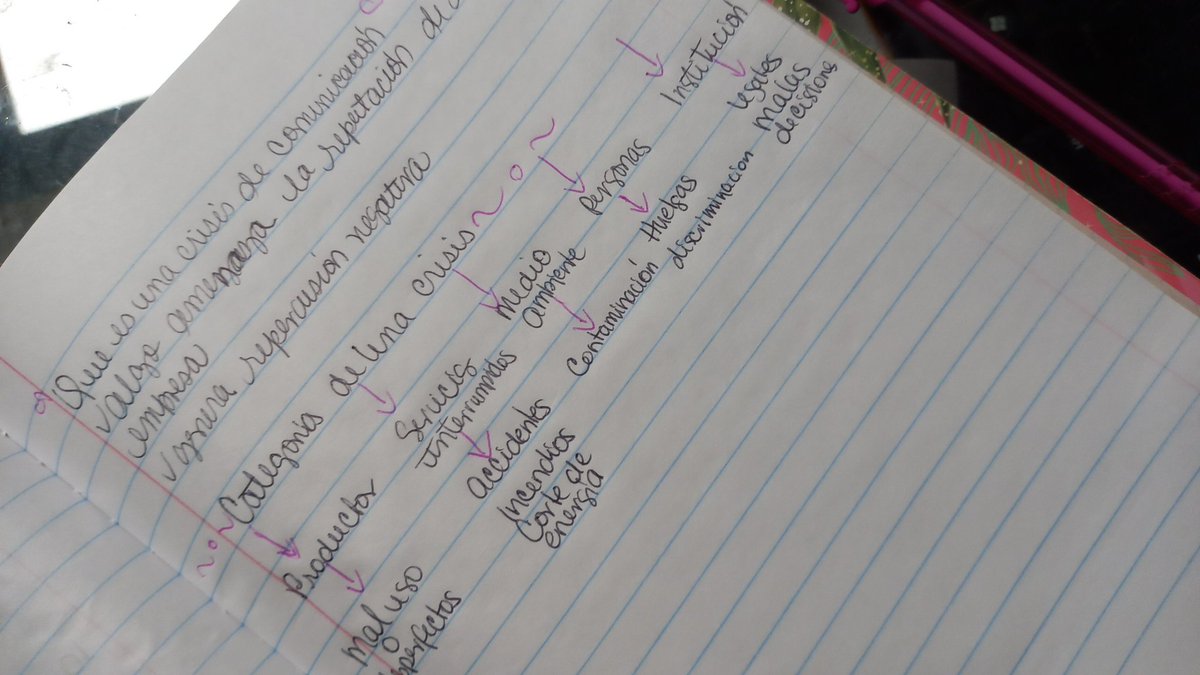 Que es una crisis de comunicación
✓algo amenaza la reputación de
empresa
✓gura repercusión negativa
~o~ Categoria de una crisis ~o~
Productor
Mal uso
o
Servicis
interrumpidos
accidentes
Incendios
Corte de
energía
medio
ambiente
Contaminación
Personas
Huelgas
discriminacion
Institución
legales
malas
decisione